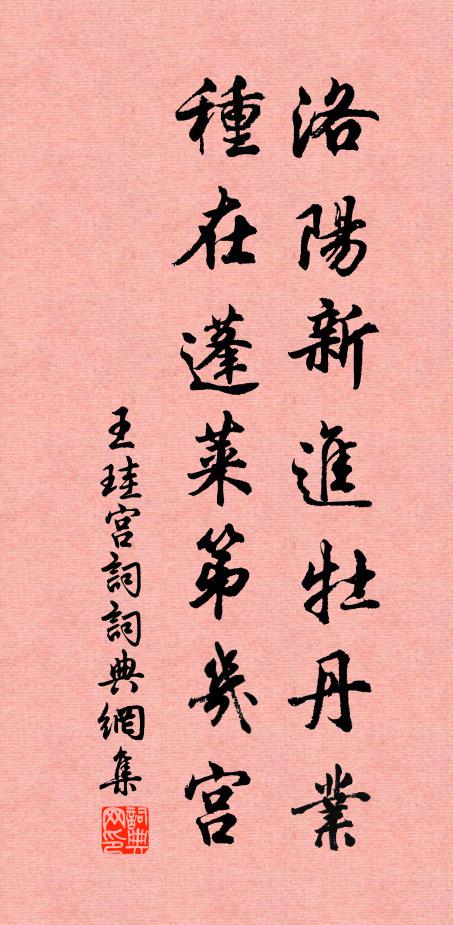 洛陽新進牡丹業
種在蓬萊第幾宮
王珪宮詞詞典網集
詞典
网印